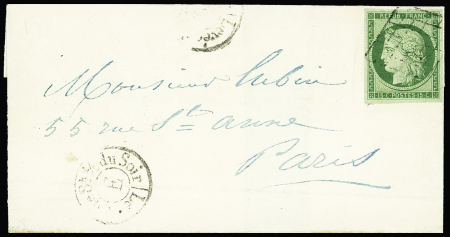 REPUB. FRANC.
15·C·POSTES·15·C.
Monsieur Lubin
55 rue Ste anne
Paris
du Soir